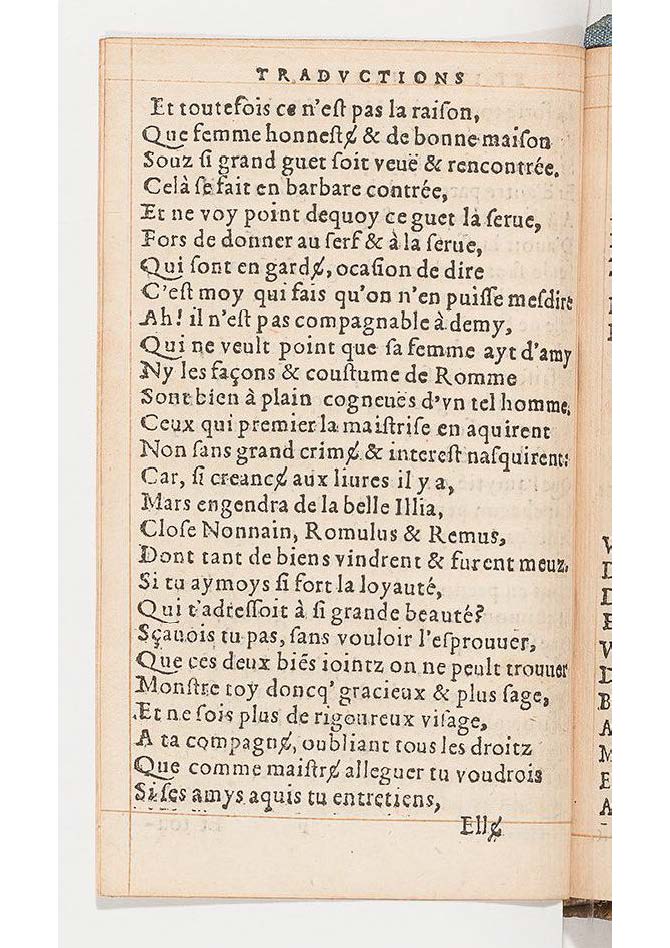 TRADVCTIONS
Et toutefois ce n'eſt pas la raiſon,
Que femme honneſtɇ & de bonne maiſon
Souz ſi grand guet ſoit veuë & rencontrée.
Celà ſe fait en barbare contrée,
Et ne voy point dequoy ce guet là ſerue,
Fors de donner au ſerf & à la ſerue,
Qui ſont en gardɇ, ocaſion de dire
C'eſt moy qui fais qu'on n'en puiſſe meſdire
Ah! il n'eſt pas compagnable à demy,
Qui ne veult point que ſa femme ayt d'amy
Ny les façons & couſtume de Romme
Sont bien à plain cogneuës d'vn tel homme.
Ceux qui premier la maiſtriſe en aquirent
Non ſans grand crimɇ & intereſt naſquirent:
Car, ſi creancɇ aux liures il y a,
Mars engendra de la belle Illia,
Cloſe Nonnain, Romulus & Remus,
Dont tant de biens vindrent & furent meuz.
Si tu aymoys ſi fort la loyauté,
Qui t'adreſſoit à ſi grande beauté?
Sçauois tu pas, ſans vouloir l'eſprouuer,
Que ces deux biés iointz on ne peult trouuer
Monſtre toy doncq' gracieux & plus ſage,
Et ne ſois plus de rigoureux viſage,
A ta compagnɇ, oubliant tous les droitz
Que comme maiſtrɇ alleguer tu voudrois
Si ſes amys aquis tu entretiens,
Ellɇ